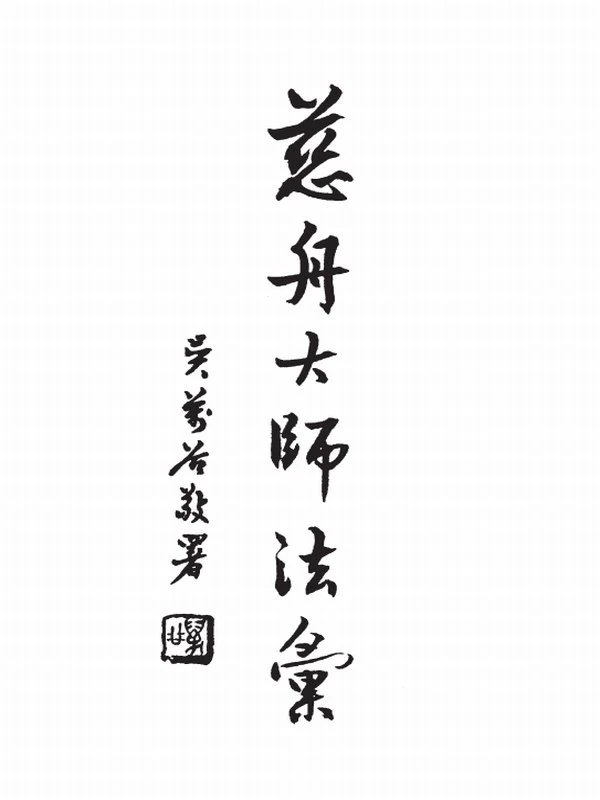 慈舟大師法彙
吳萬谷敬署